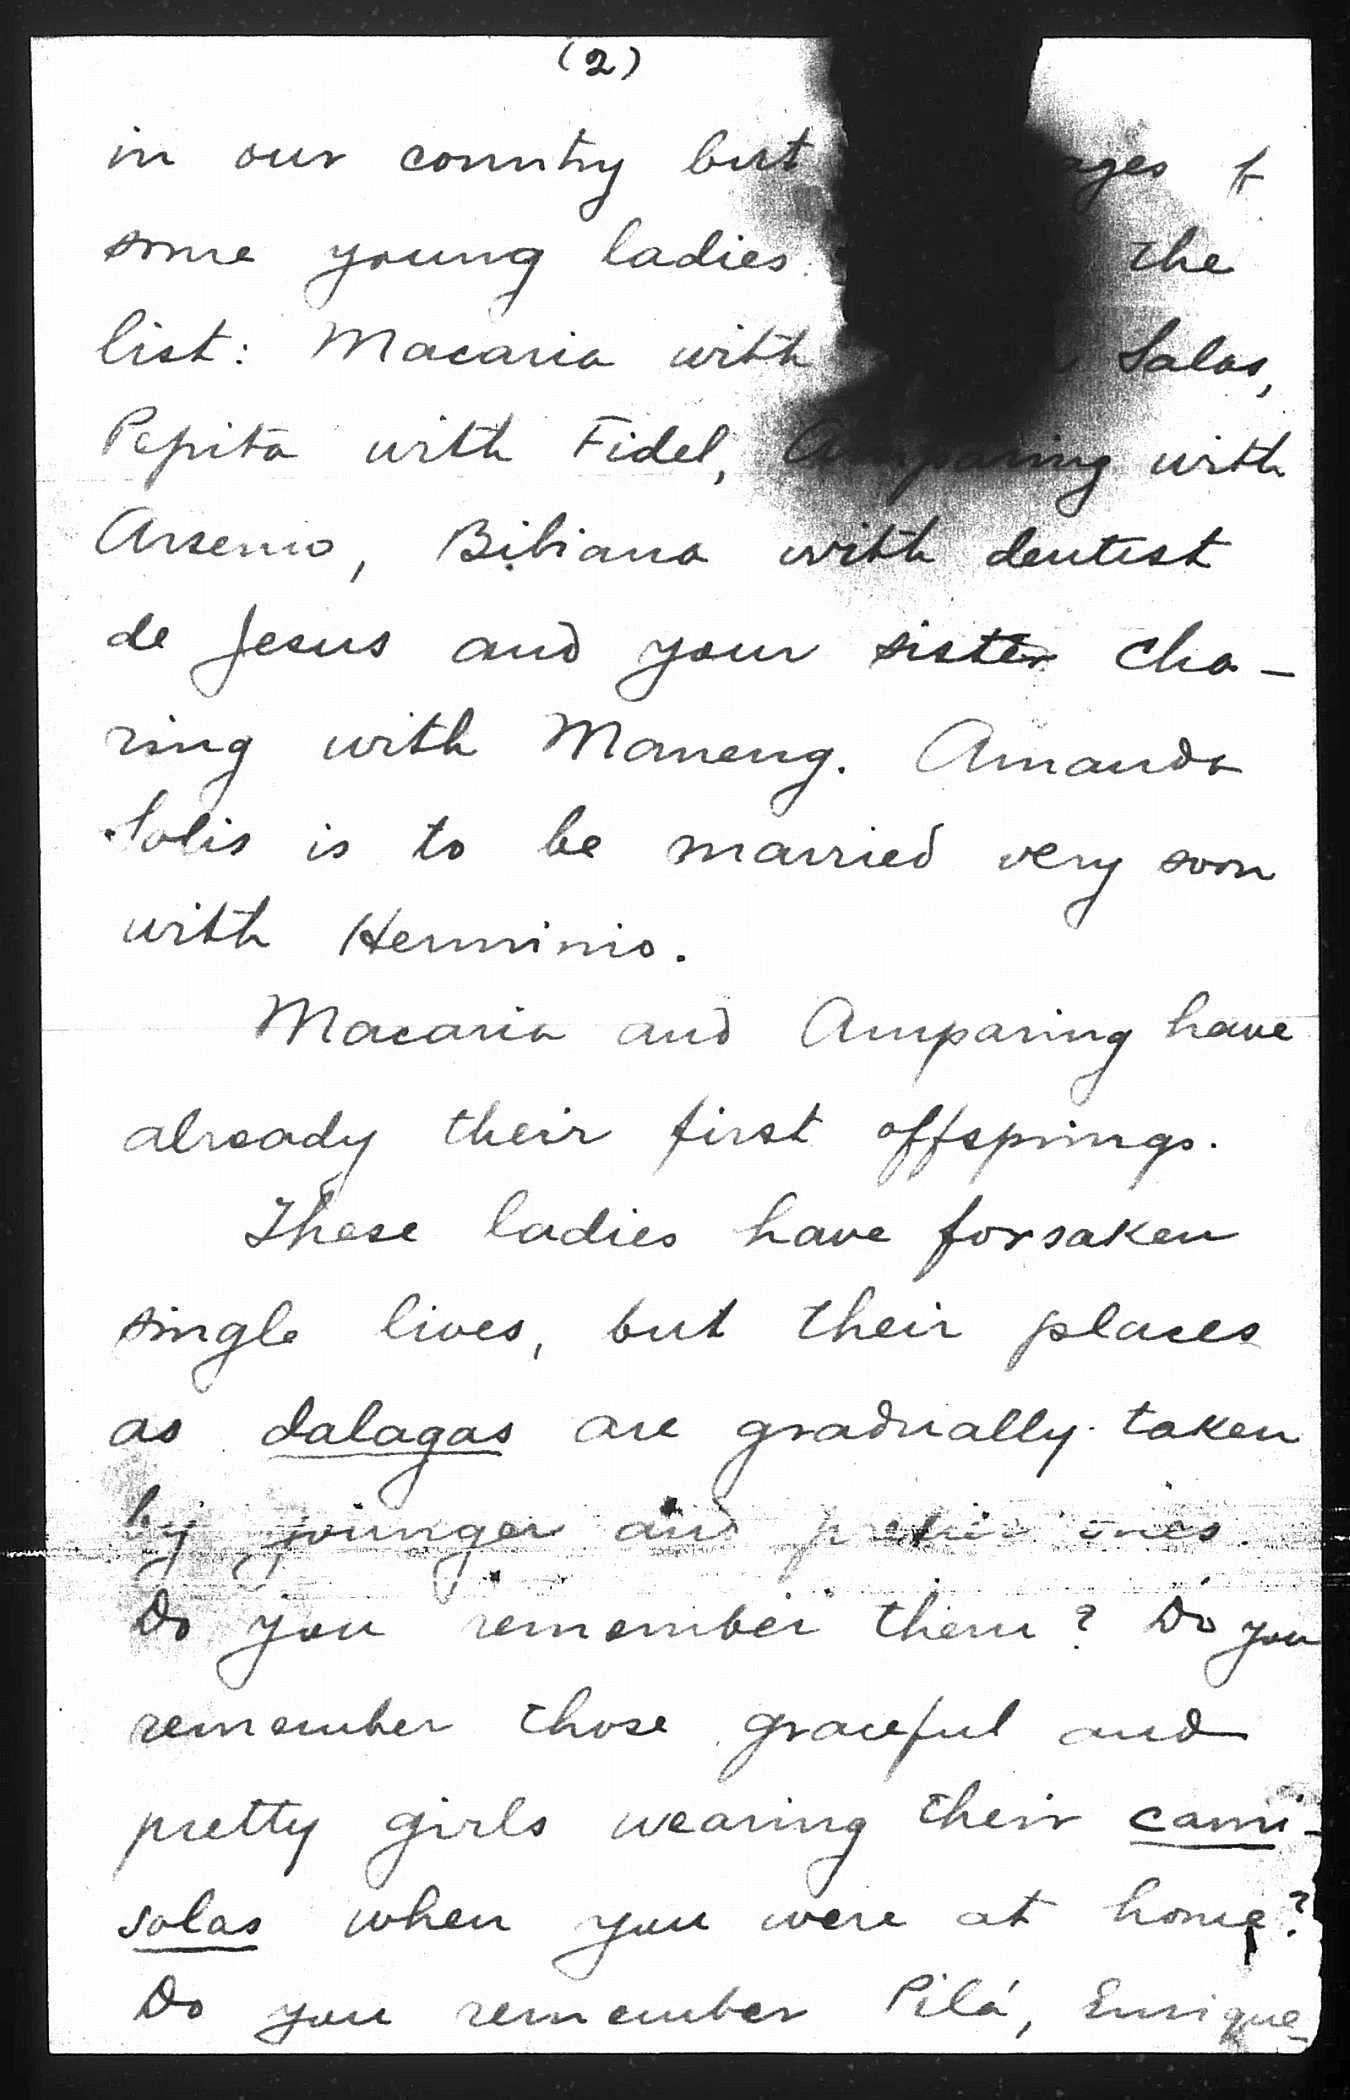 (2)
in our country but of
some young ladies the
list: Macaria with Salas,
Pepita with Fidel, Amparing with
Arsenio, Bibiana with dentist
de Jesus and your sister Cha-
ring with Maneng. Amanda
Solis is to be married very soon
with Herminio.
Macaria and Amparing have
already their first offsprings.
These ladies have forsaken
single lives, but their places
as dalagas are gradually taken
by younger and ones.
Do you remember them? Do you
remember those graceful and
pretty girls wearing their cami-
solas when you were at home?
Do you remember Pilá, Enrique-